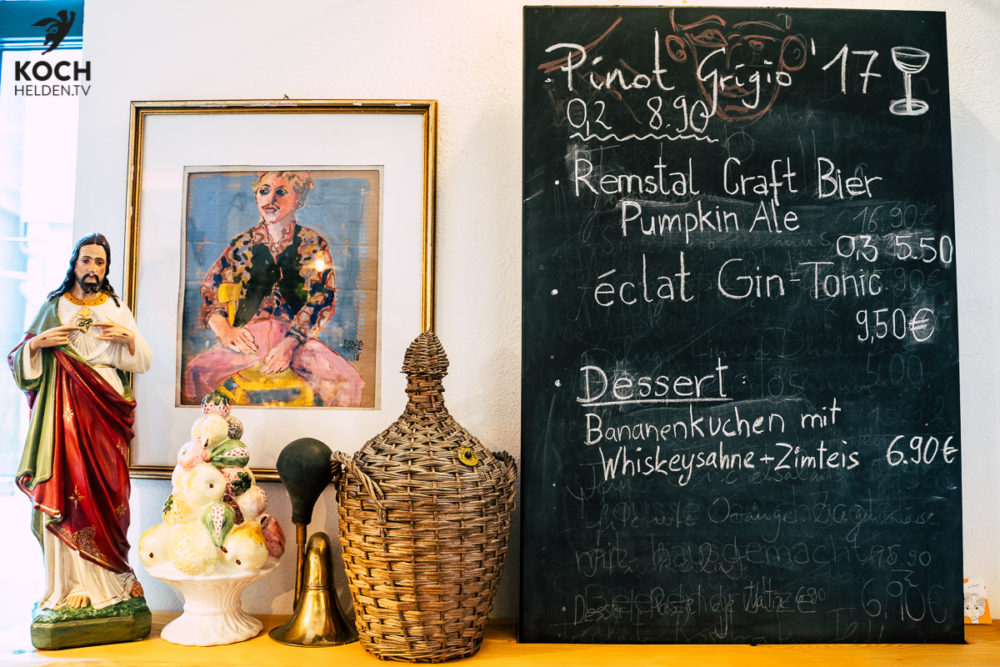 KOCH
HELDEN.TV
Pinot Grigio '17
0,2 8.90
· Remstal Craft Bier
Pumpkin Ale
0,3 5.50
· éclat Gin-Tonic
9,50€
· Dessert:
Bananenkuchen mit
Whiskeysahne+Zimteis 6.90€
6,90€